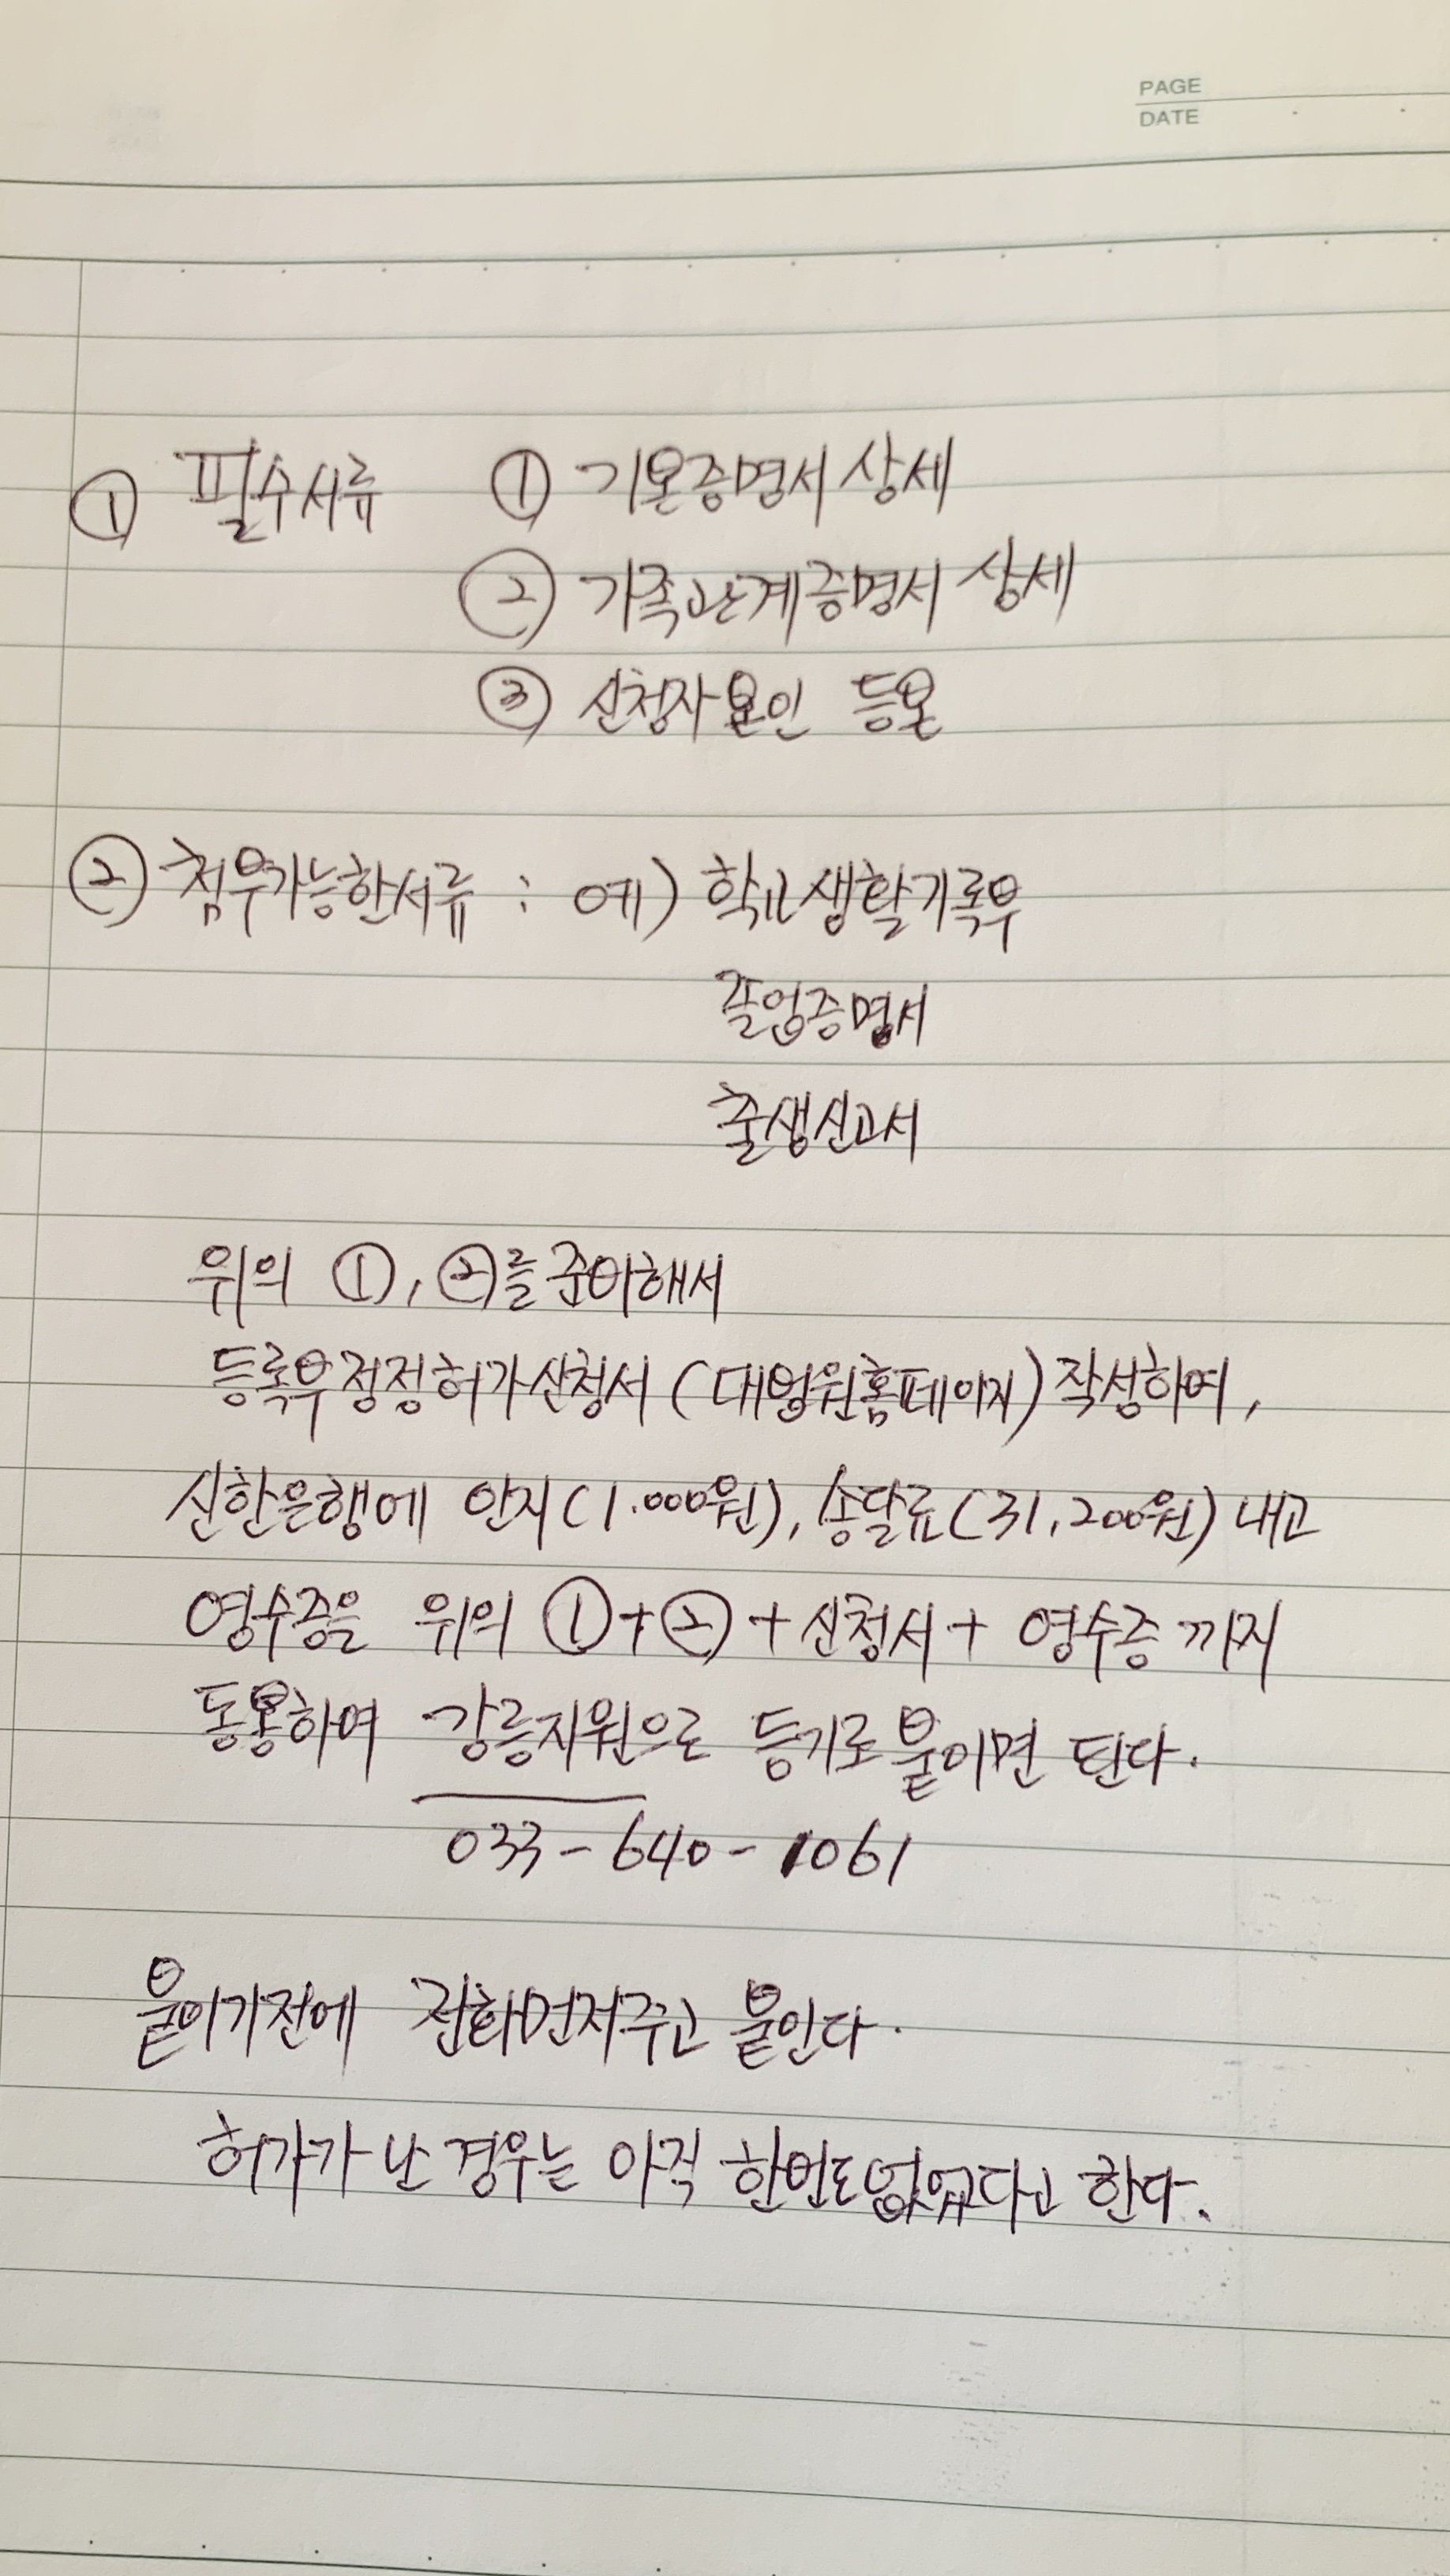 PAGE
DATE
① 필수서류 ① 기본증명서 상세
② 가족관계증명서 상세
③ 신청자본인 등본
② 첨부가능한서류 : 예) 학교생활기록부
졸업증명서
출생신고서
위의 ①, ②를 준비해서
등록부정정허가신청서 (대법원홈페이지) 작성하여,
신한은행에 인지(1.000원), 송달료(31,200원) 내고
영수증은 위의 ①+② + 신청서 + 영수증 까지
동봉하여 강릉지원으로 등기로 붙이면 된다.
033-640-1061
붙이기전에 전화먼저주고 붙인다.
허가가 난 경우는 아직 한번도없었다고 한다.